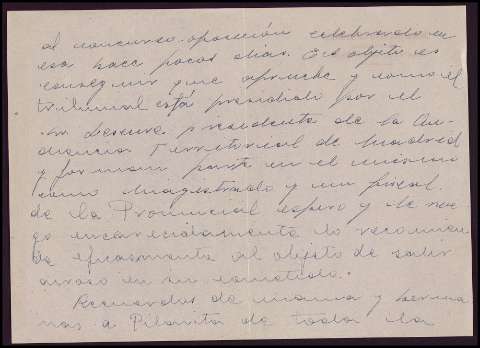 al concurso-oposición celebrado en
esa hace pocos dias. El objeto es
conseguir que apruebe y como el
tribunal está presidido por el
Sr. presidente de la Au-
diencia Territorial de Madrid
y forman parte en el mismo
como magistrado y un fiscal
de la Provincial espero y le rue-
go encarecidamente lo recomien-
de eficazmente al objeto de salir
airoso en su cometido.
Recuerdos de mama y herma
nas a Pilarita de toda la